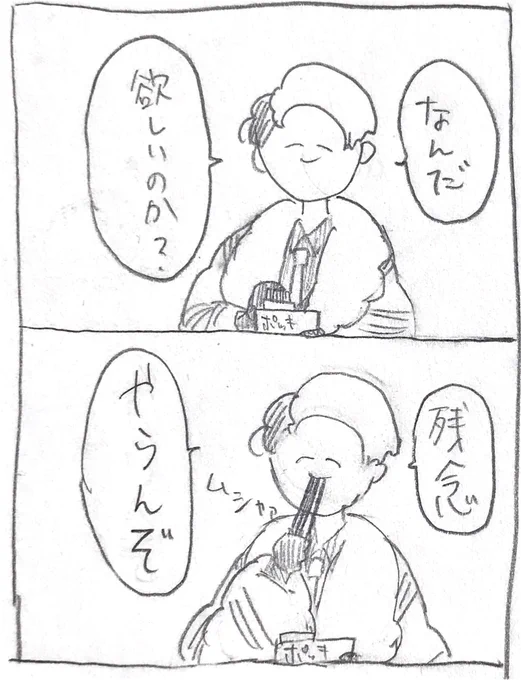 なんだ
欲しいのか？
ポッキ
残念
やらんぞ
ムシャァ
ポッキ